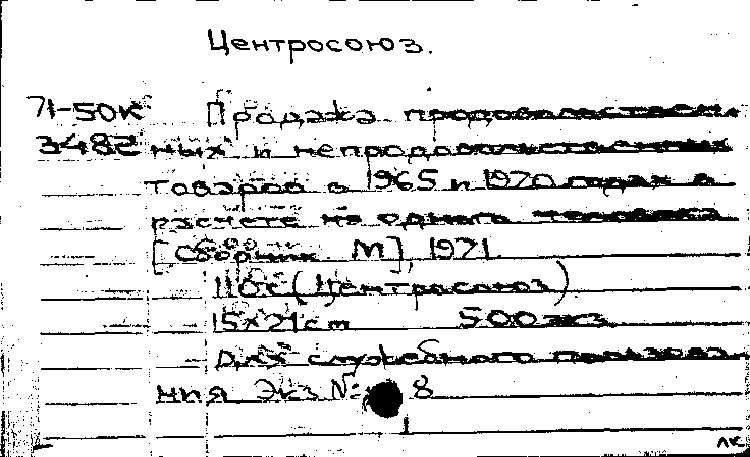 Центросоюз.
71-50к Продажа продовольствен-
3482 ных и непродовольственных
товаров в 1965 и 1970 годах в
расчете на одного человека
[Сборник М], 1971.
110с (Центросоюз)
15x21cm 500 экз
Для служебного пользова-
ния Экз № 8
лк